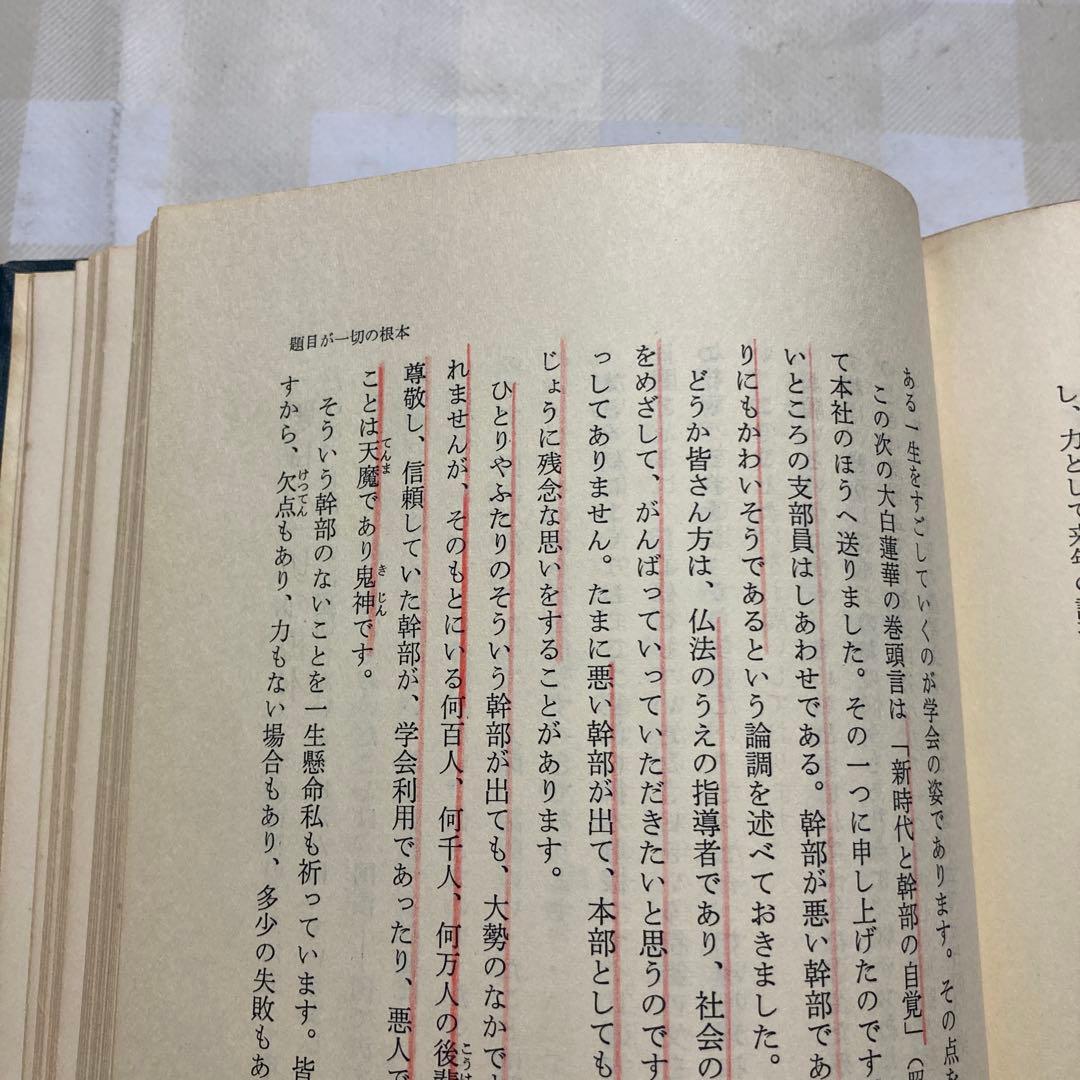 し、力として来年の
ある一生をすごしていくのが学会の姿であります。その点を
この次の大白蓮華の巻頭言は「新時代と幹部の自覚」(
て本社のほうへ送りました。その一つに申し上げたのです
いところの支部員はしあわせである。幹部が悪い幹部であ
りにもかわいそうであるという論調を述べておきました。
どうか皆さん方は、仏法のうえの指導者であり、社会の
をめざして、がんばっていっていただきたいと思うのです
っしてありません。たまに悪い幹部が出て、本部としても
じょうに残念な思いをすることがあります。
ひとりやふたりのそういう幹部が出ても、大勢のなかで
れませんが、そのもとにいる何百人、何千人、何万人の後輩
尊敬し、信頼していた幹部が、学会利用であったり、悪人で
ことは天魔であり鬼神です。
そういう幹部のないことを一生懸命私も祈っています。皆
すから、欠点もあり、力もない場合もあり、多少の失敗もあ
題目が一切の根本